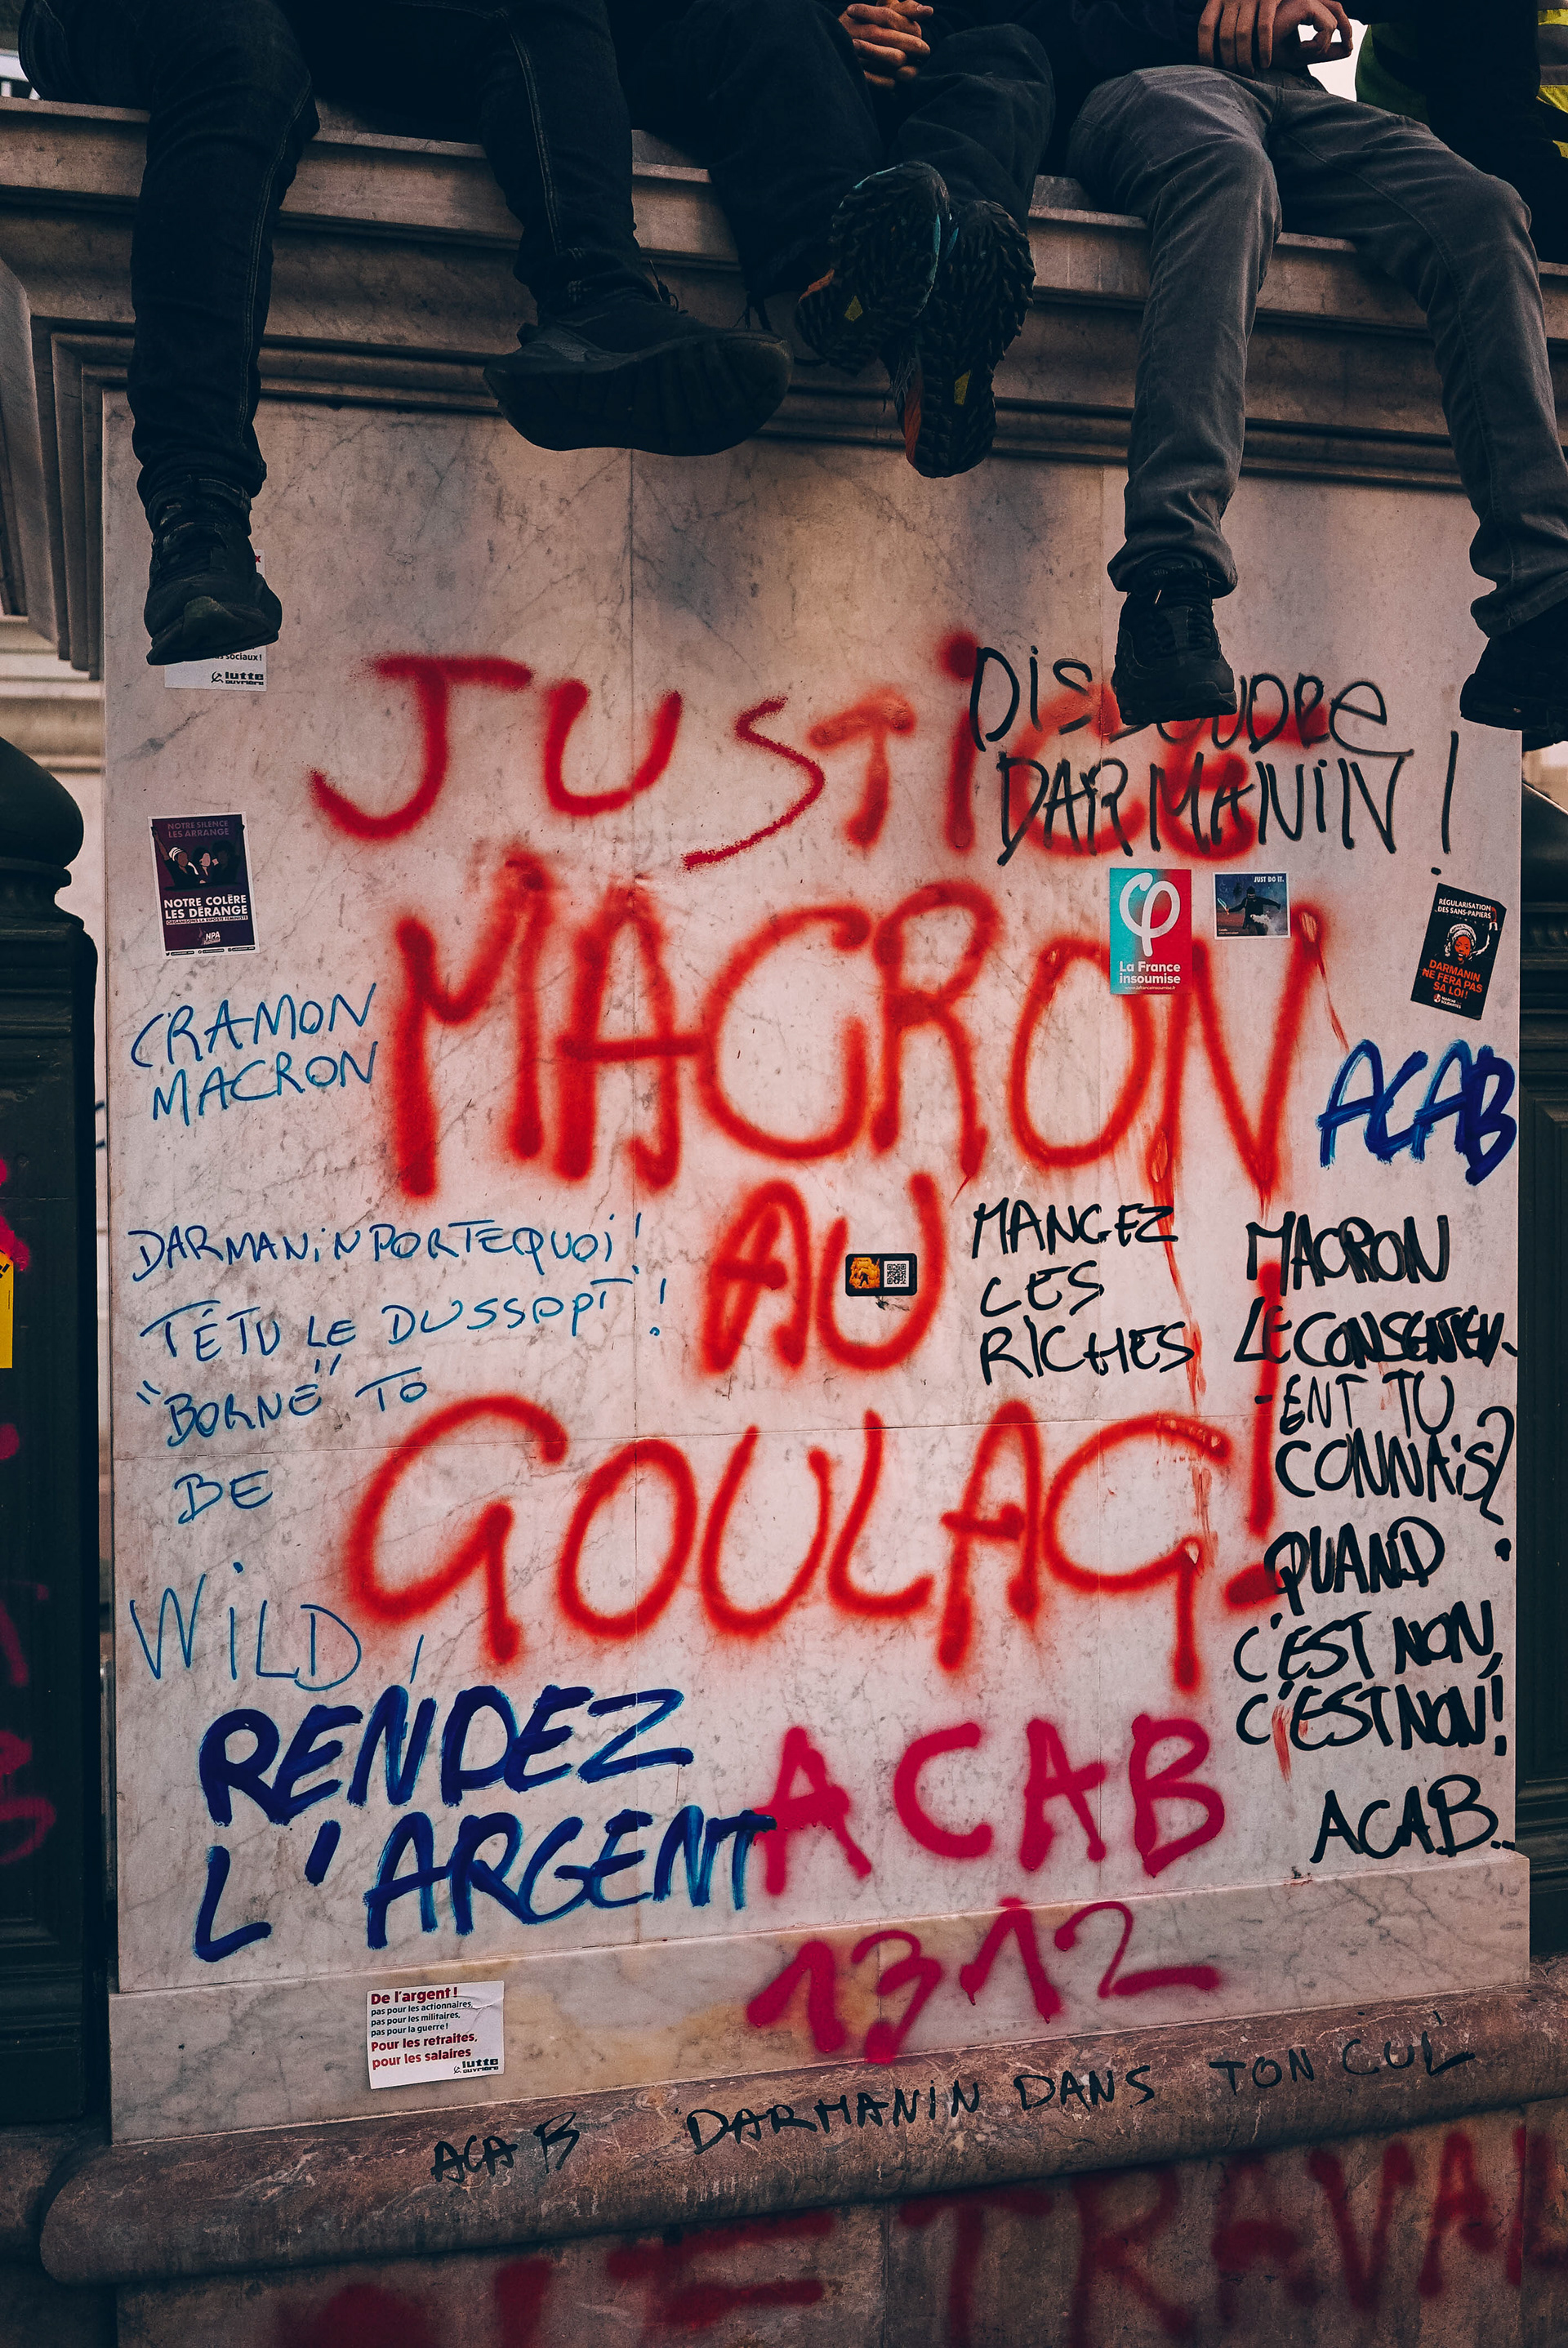 sociaux !
lutte
ouvrière
JUSTICE
DISSOUDRE
DARMANIN !
NOTRE SILENCE
LES ARRANGE
NOTRE COLÈRE
LES DÉRANGE
ORGANISONS LA RIPOSTE FÉMINISTE
NPA
La France
insoumise
JUST DO IT.
RÉGULARISATION
DES SANS-PAPIERS
DARMANIN
NE FERA PAS
SA LOI !
MARCHE
SOLIDARITÉS
MACRON
AU
GOULAG !
CRAMON
MACRON
ACAB
DARMANIN PORTEQUOI !
TÊTU LE DUSSOPT !
"BORNE" TO
BE
WILD,
MANGEZ
LES
RICHES
MACRON
LE CONSENTEM-
-ENT TU
CONNAIS ?
QUAND
C'EST NON,
C'EST NON !
ACAB..
RENDEZ
L'ARGENT
ACAB
1312
De l'argent !
pas pour les actionnaires,
pas pour les militaires,
pas pour la guerre !
Pour les retraites,
pour les salaires
lutte
ouvrière
ACAB DARMANIN DANS TON CUL
TRAVAI